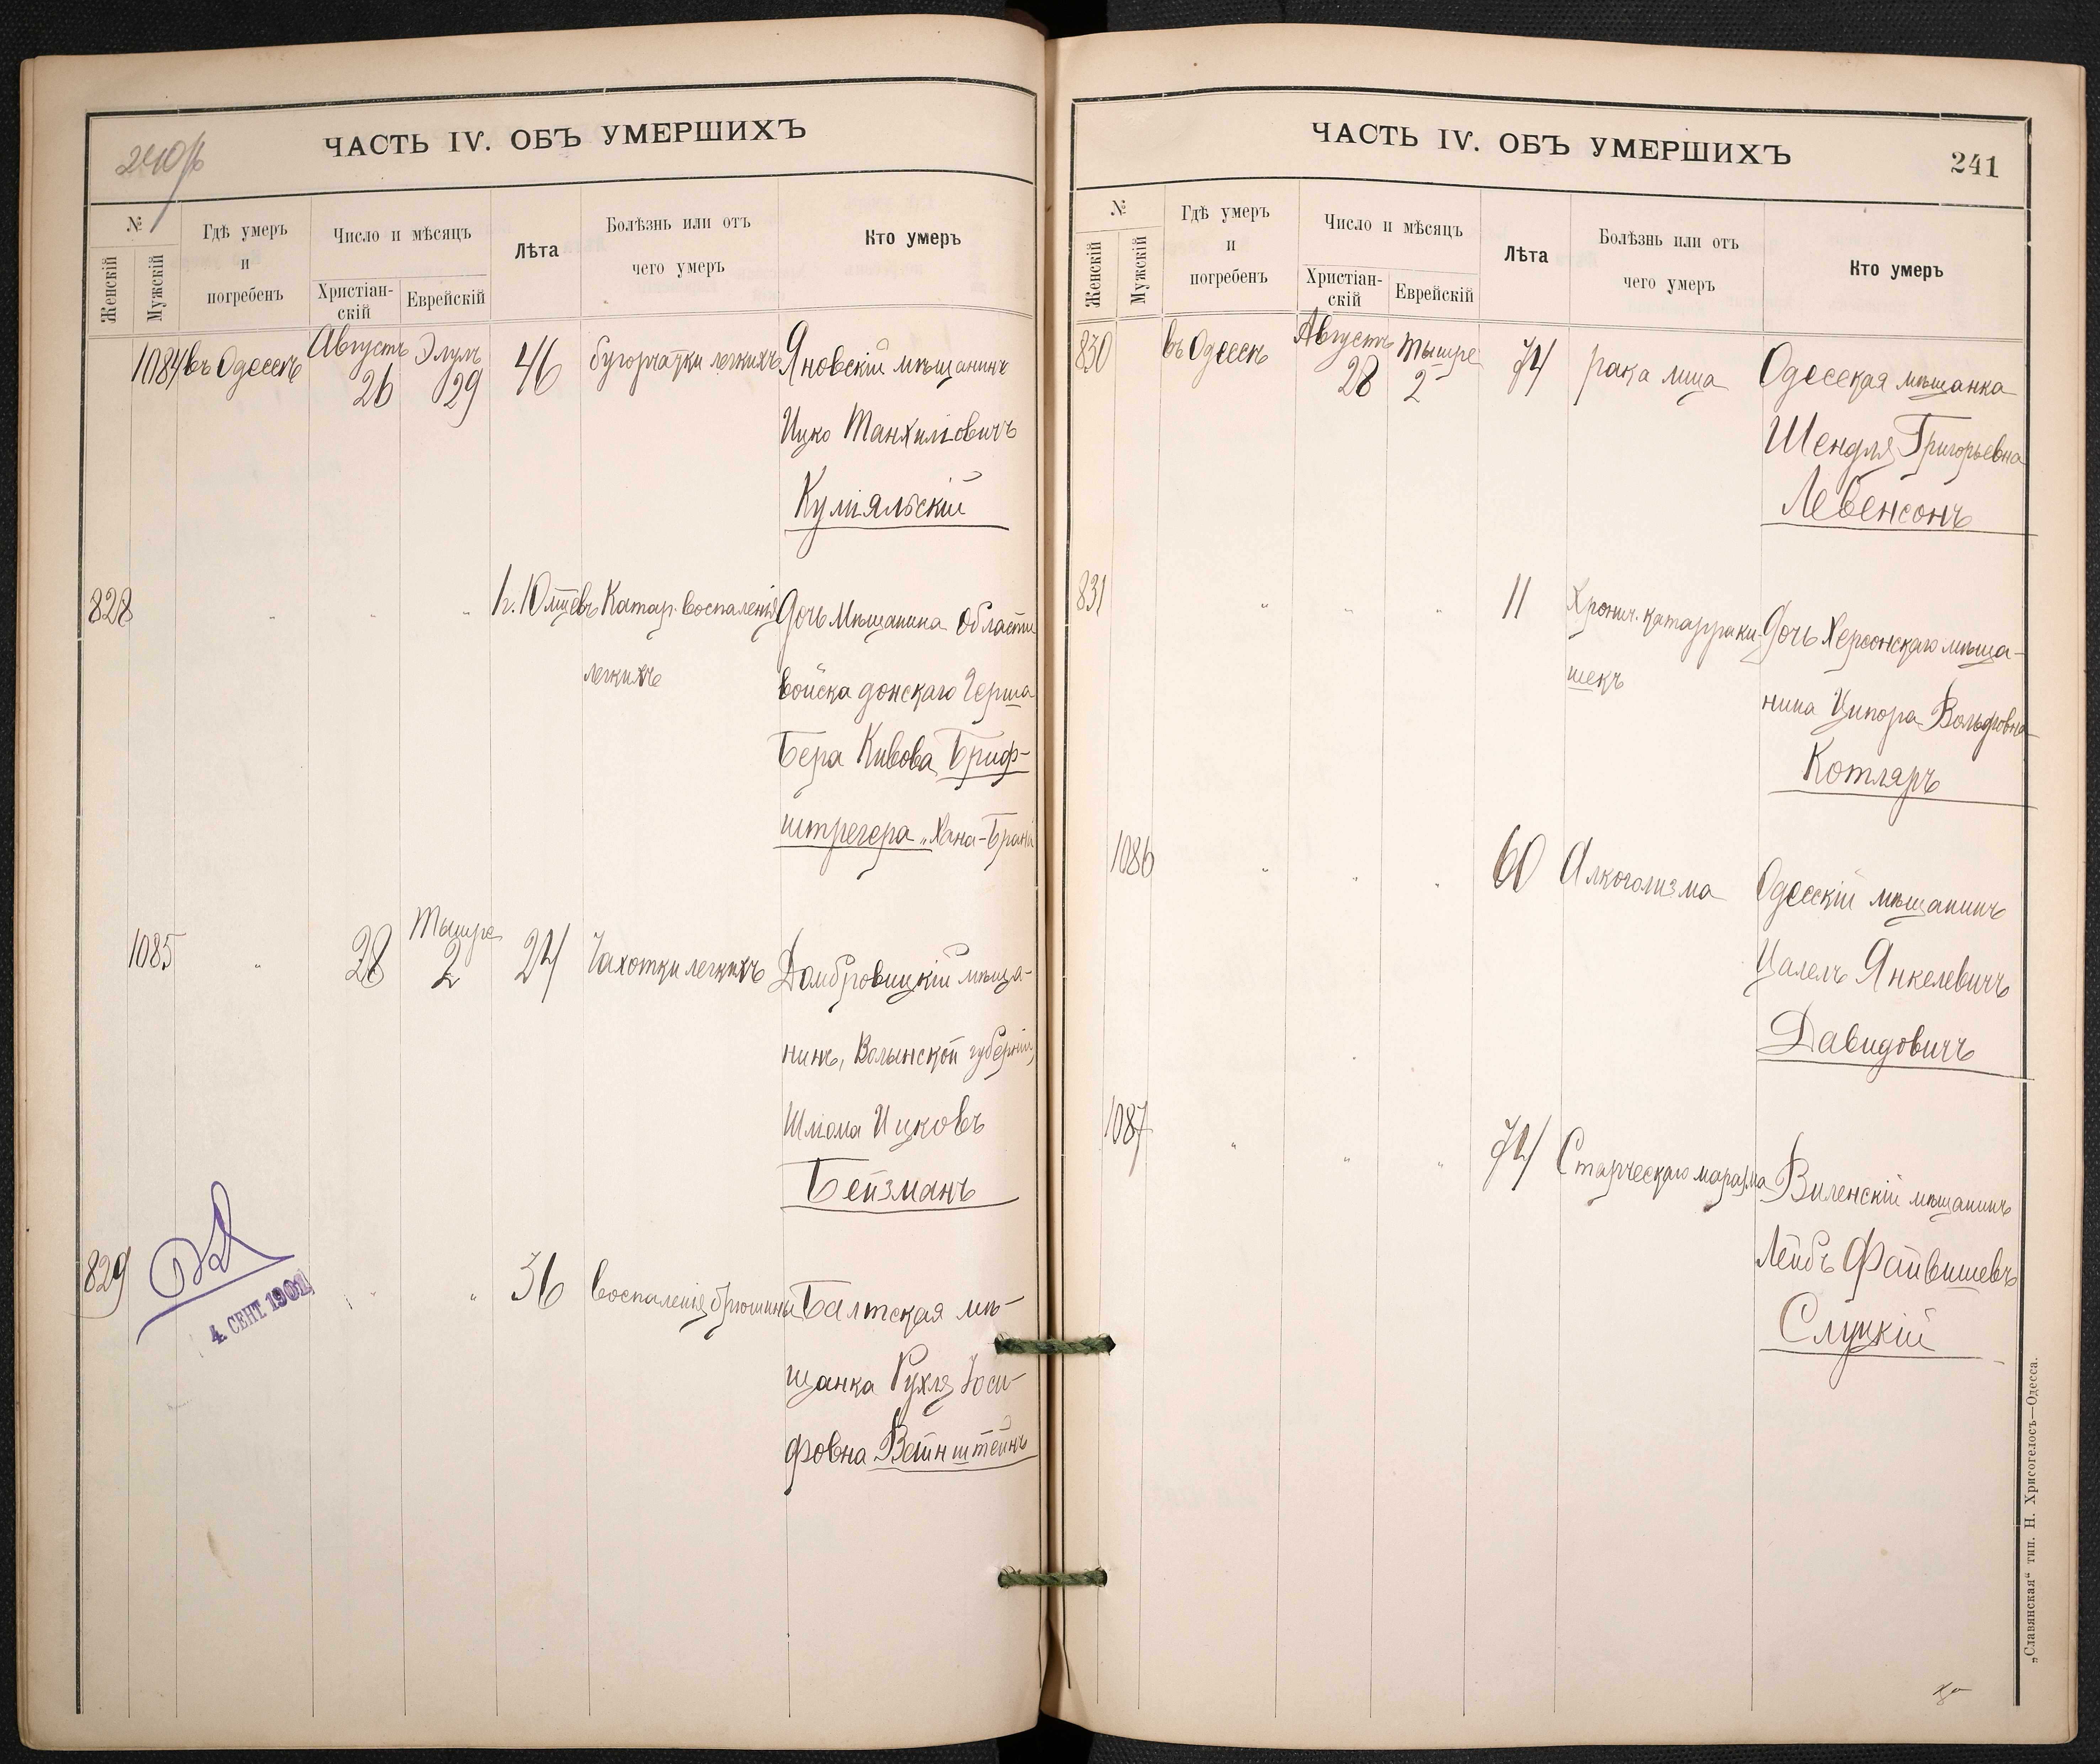 240/б
ЧАСТЬ IV. ОБЪ УМЕРШИХЪ
№
Женскій
Мужскій
Гдѣ умеръ
и
погребенъ
Число и мѣсяцъ
Христіан-
скій
Еврейскій
Лѣта
Болѣзнь или отъ
чего умеръ
Кто умеръ
1084 въ Одессѣ Августъ 26 Элулъ 29 46 бугорчатки легкихъ Яновскій мѣщанинъ
Ицко Танхилiовичъ
Куліяльскій
828 " " " 1 г. 10 мцѣвъ Катар. воспаленія Дочь Мѣщанина Области
легкихъ войска донскаго Герша
Бера Кивова Бриф-
штрегера „Хана-Брана
1085 " 28 Тышре 2 24 Чахотки легкихъ Домбровицкій мѣща-
нинъ, Волынской губерніи,
Шлома Ицковъ
Бейзманъ
829 " " 36 воспаленія брюшины Балтская мѣ-
щанка Рухля Іоси-
фовна Вейнштейнъ
4 СЕНТ 1901
ЧАСТЬ IV. ОБЪ УМЕРШИХЪ
241
№
Женскій
Мужскій
Гдѣ умеръ
и
погребенъ
Число и мѣсяцъ
Христіан-
скій
Еврейскій
Лѣта
Болѣзнь или отъ
чего умеръ
Кто умеръ
830 въ Одессѣ Августъ 28 Тышре 2 74 рака лица Одесская мѣщанка
Шендля Григорьевна
Левенсонъ
831 " " " 11 Хронич. катарра ки- Дочь Херсонскаго мѣща-
шекъ нина Ципора Вольфовна
Котляръ
1086 " " " 60 Алкоголизма Одесскій мѣщанинъ
Цалелъ Янкелевичъ
Давидовичъ
1087 " " " 74 Старческаго маразма Виленскій мѣщанинъ
Лейбъ Файвишевъ
Слуцкій
„Славянская“ тип. Н. Хрисогелосъ—Одесса.